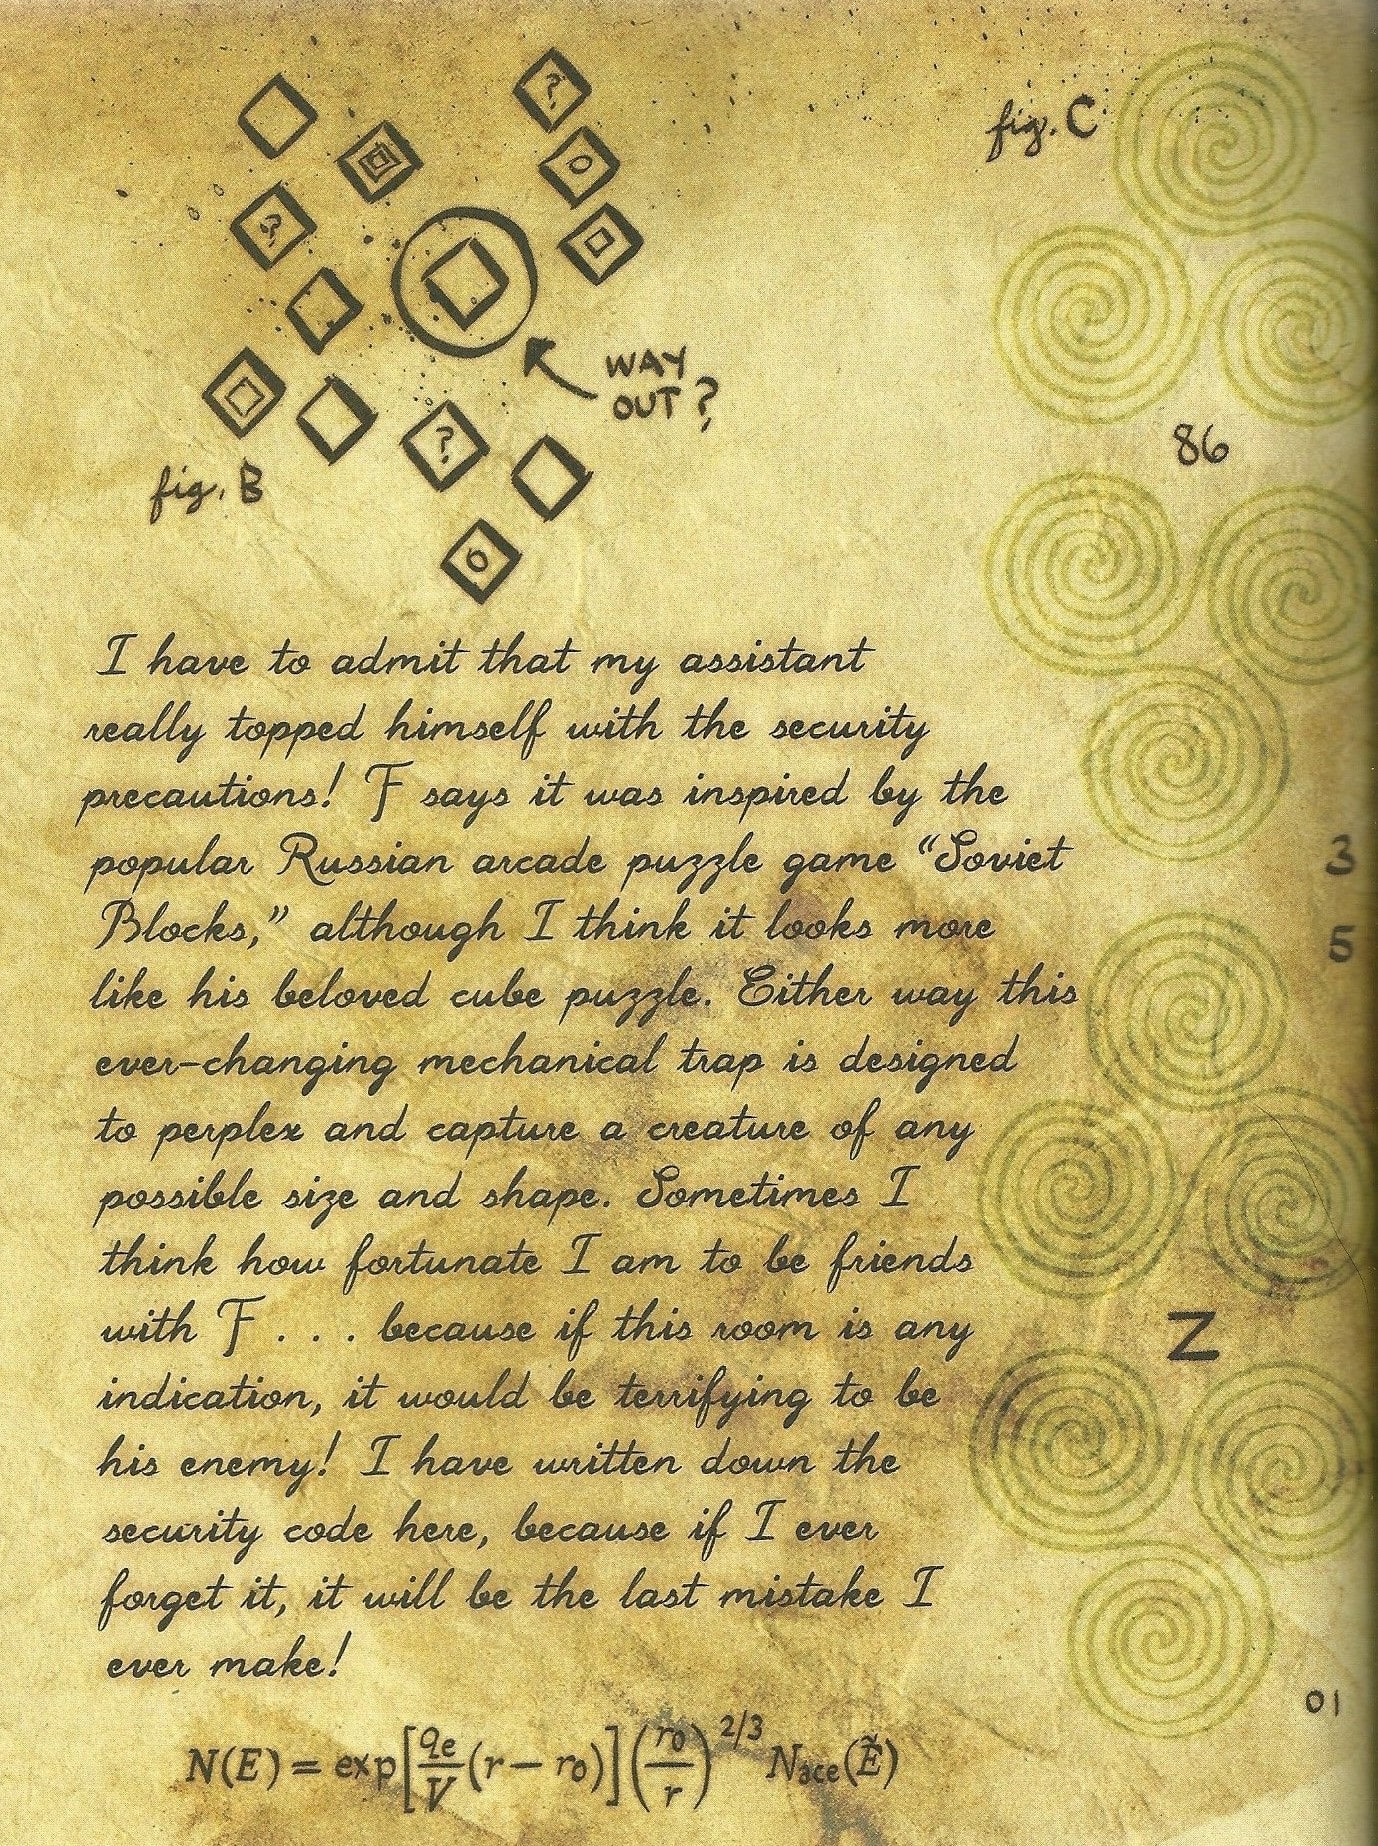 ?
fig. C
0
?
WAY
OUT?
86
?
fig. B
0
I have to admit that my assistant
really topped himself with the security
precautions! F says it was inspired by the
popular Russian arcade puzzle game “Soviet
Blocks,” although I think it looks more
like his beloved cube puzzle. Either way this
ever-changing mechanical trap is designed
to perplex and capture a creature of any
possible size and shape. Sometimes I
think how fortunate I am to be friends
with F . . . because if this room is any
indication, it would be terrifying to be
his enemy! I have written down the
security code here, because if I ever
forget it, it will be the last mistake I
ever make!
3
5
Z
01
N(E) = exp[qe/V (r – r0)](r0/r)^2/3 Nace(Ẽ)